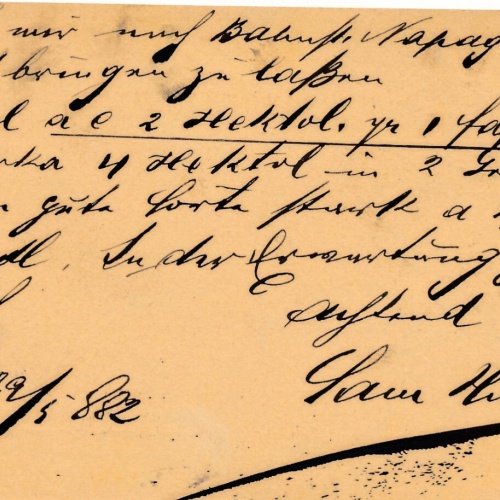 mir nach Bahnst. Napag
bringen zu laßen
a c 2 Hektol. gr 1 fa
rka 4 Hektol in 2
gute Sorte stark a
In der Erwartung
achtend
29/5 882
Sam H